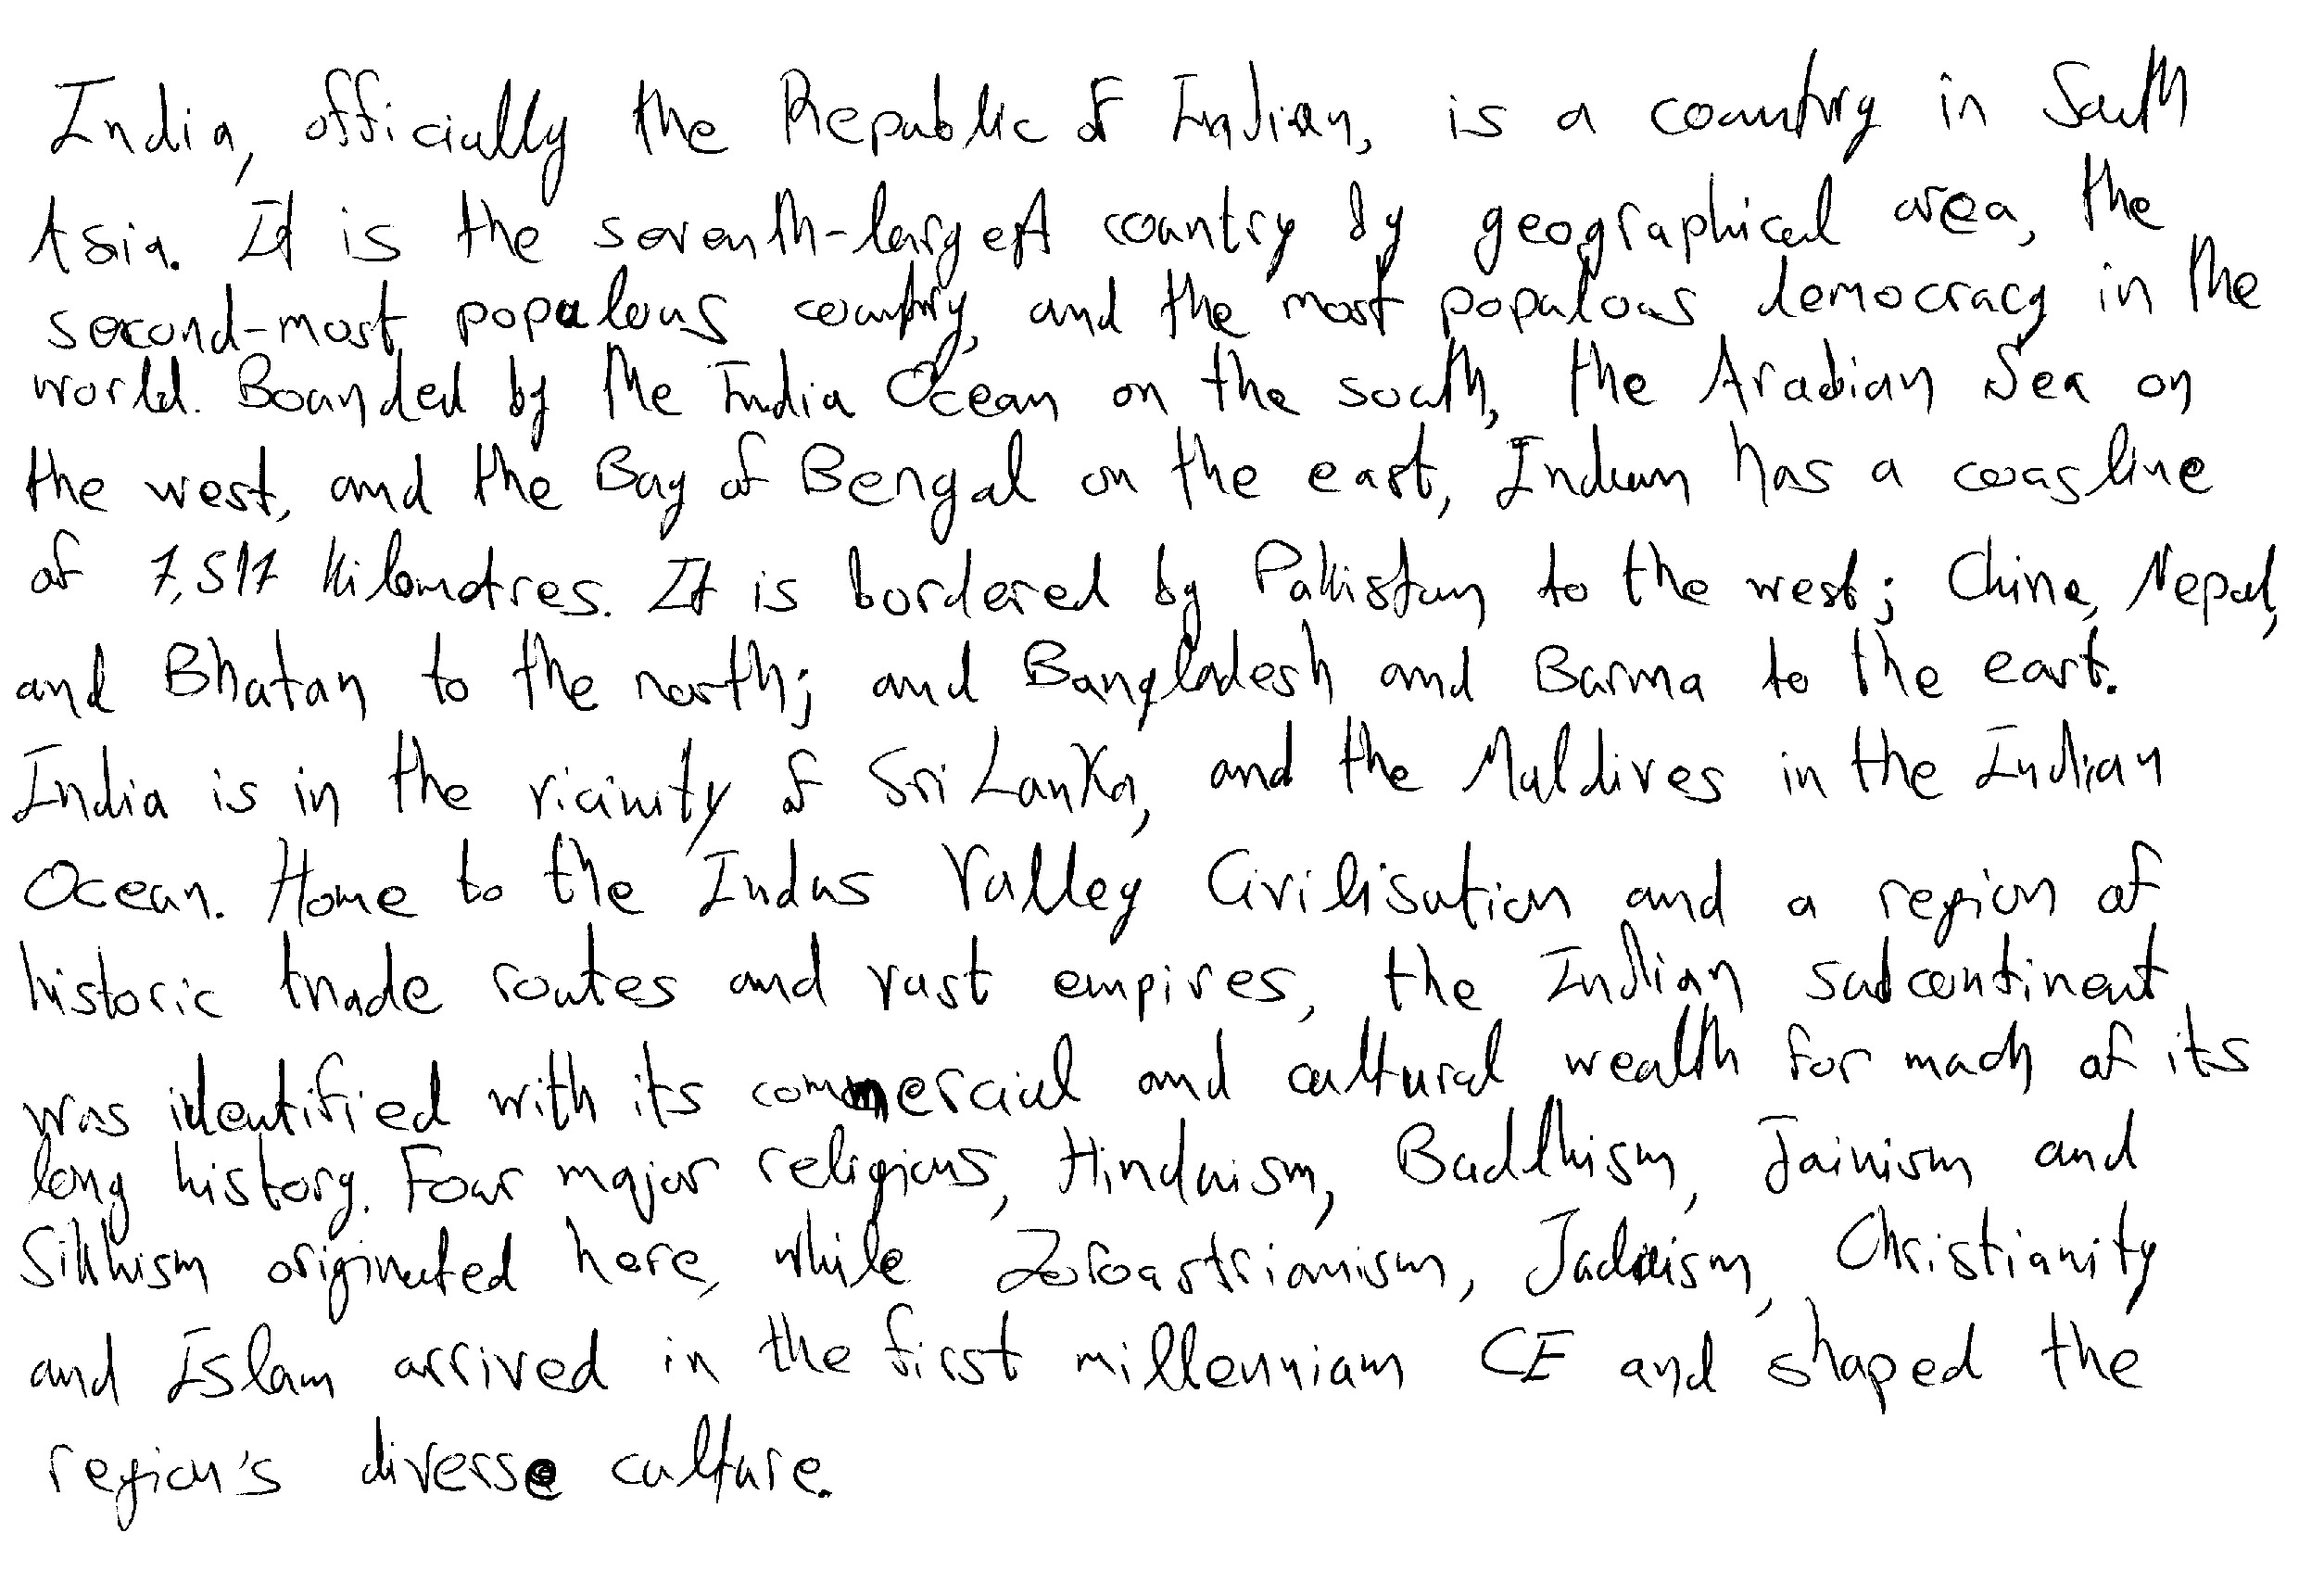 India, officially the Republic of Indian, is a country in South
Asia. It is the seventh-largest country by geographical area, the
second-most populous country, and the most populous democracy in the
world. Bounded by the India Ocean on the south, the Arabian Sea on
the west, and the Bay of Bengal on the east, Indian has a coasline
of 7,517 kilometres. It is bordered by Pakistan to the west; China, Nepal,
and Bhutan to the north; and Bangladesh and Burma to the east.
India is in the vicinity of Sri Lanka, and the Maldives in the Indian
Ocean. Home to the Indus Valley Civilisation and a region of
historic trade routes and vast empires, the Indian subcontinent
was identified with its commercial and cultural wealth for much of its
long history. Four major religions, Hinduism, Buddhism, Jainism and
Sikhism originated here, while Zoroastrianism, Judaism, Christianity
and Islam arrived in the first millennium CE and shaped the
region's diverse culture.